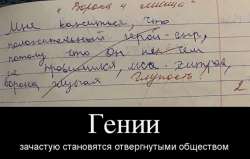 "Ворона и лисица"
Мне кажеться, что
положительный герой - сыр,
потому что он нек чем
не провинился, лиса - хитрая,
ворона глупая Глупость! 2
Гении
зачастую становятся отвергнутыми обществом